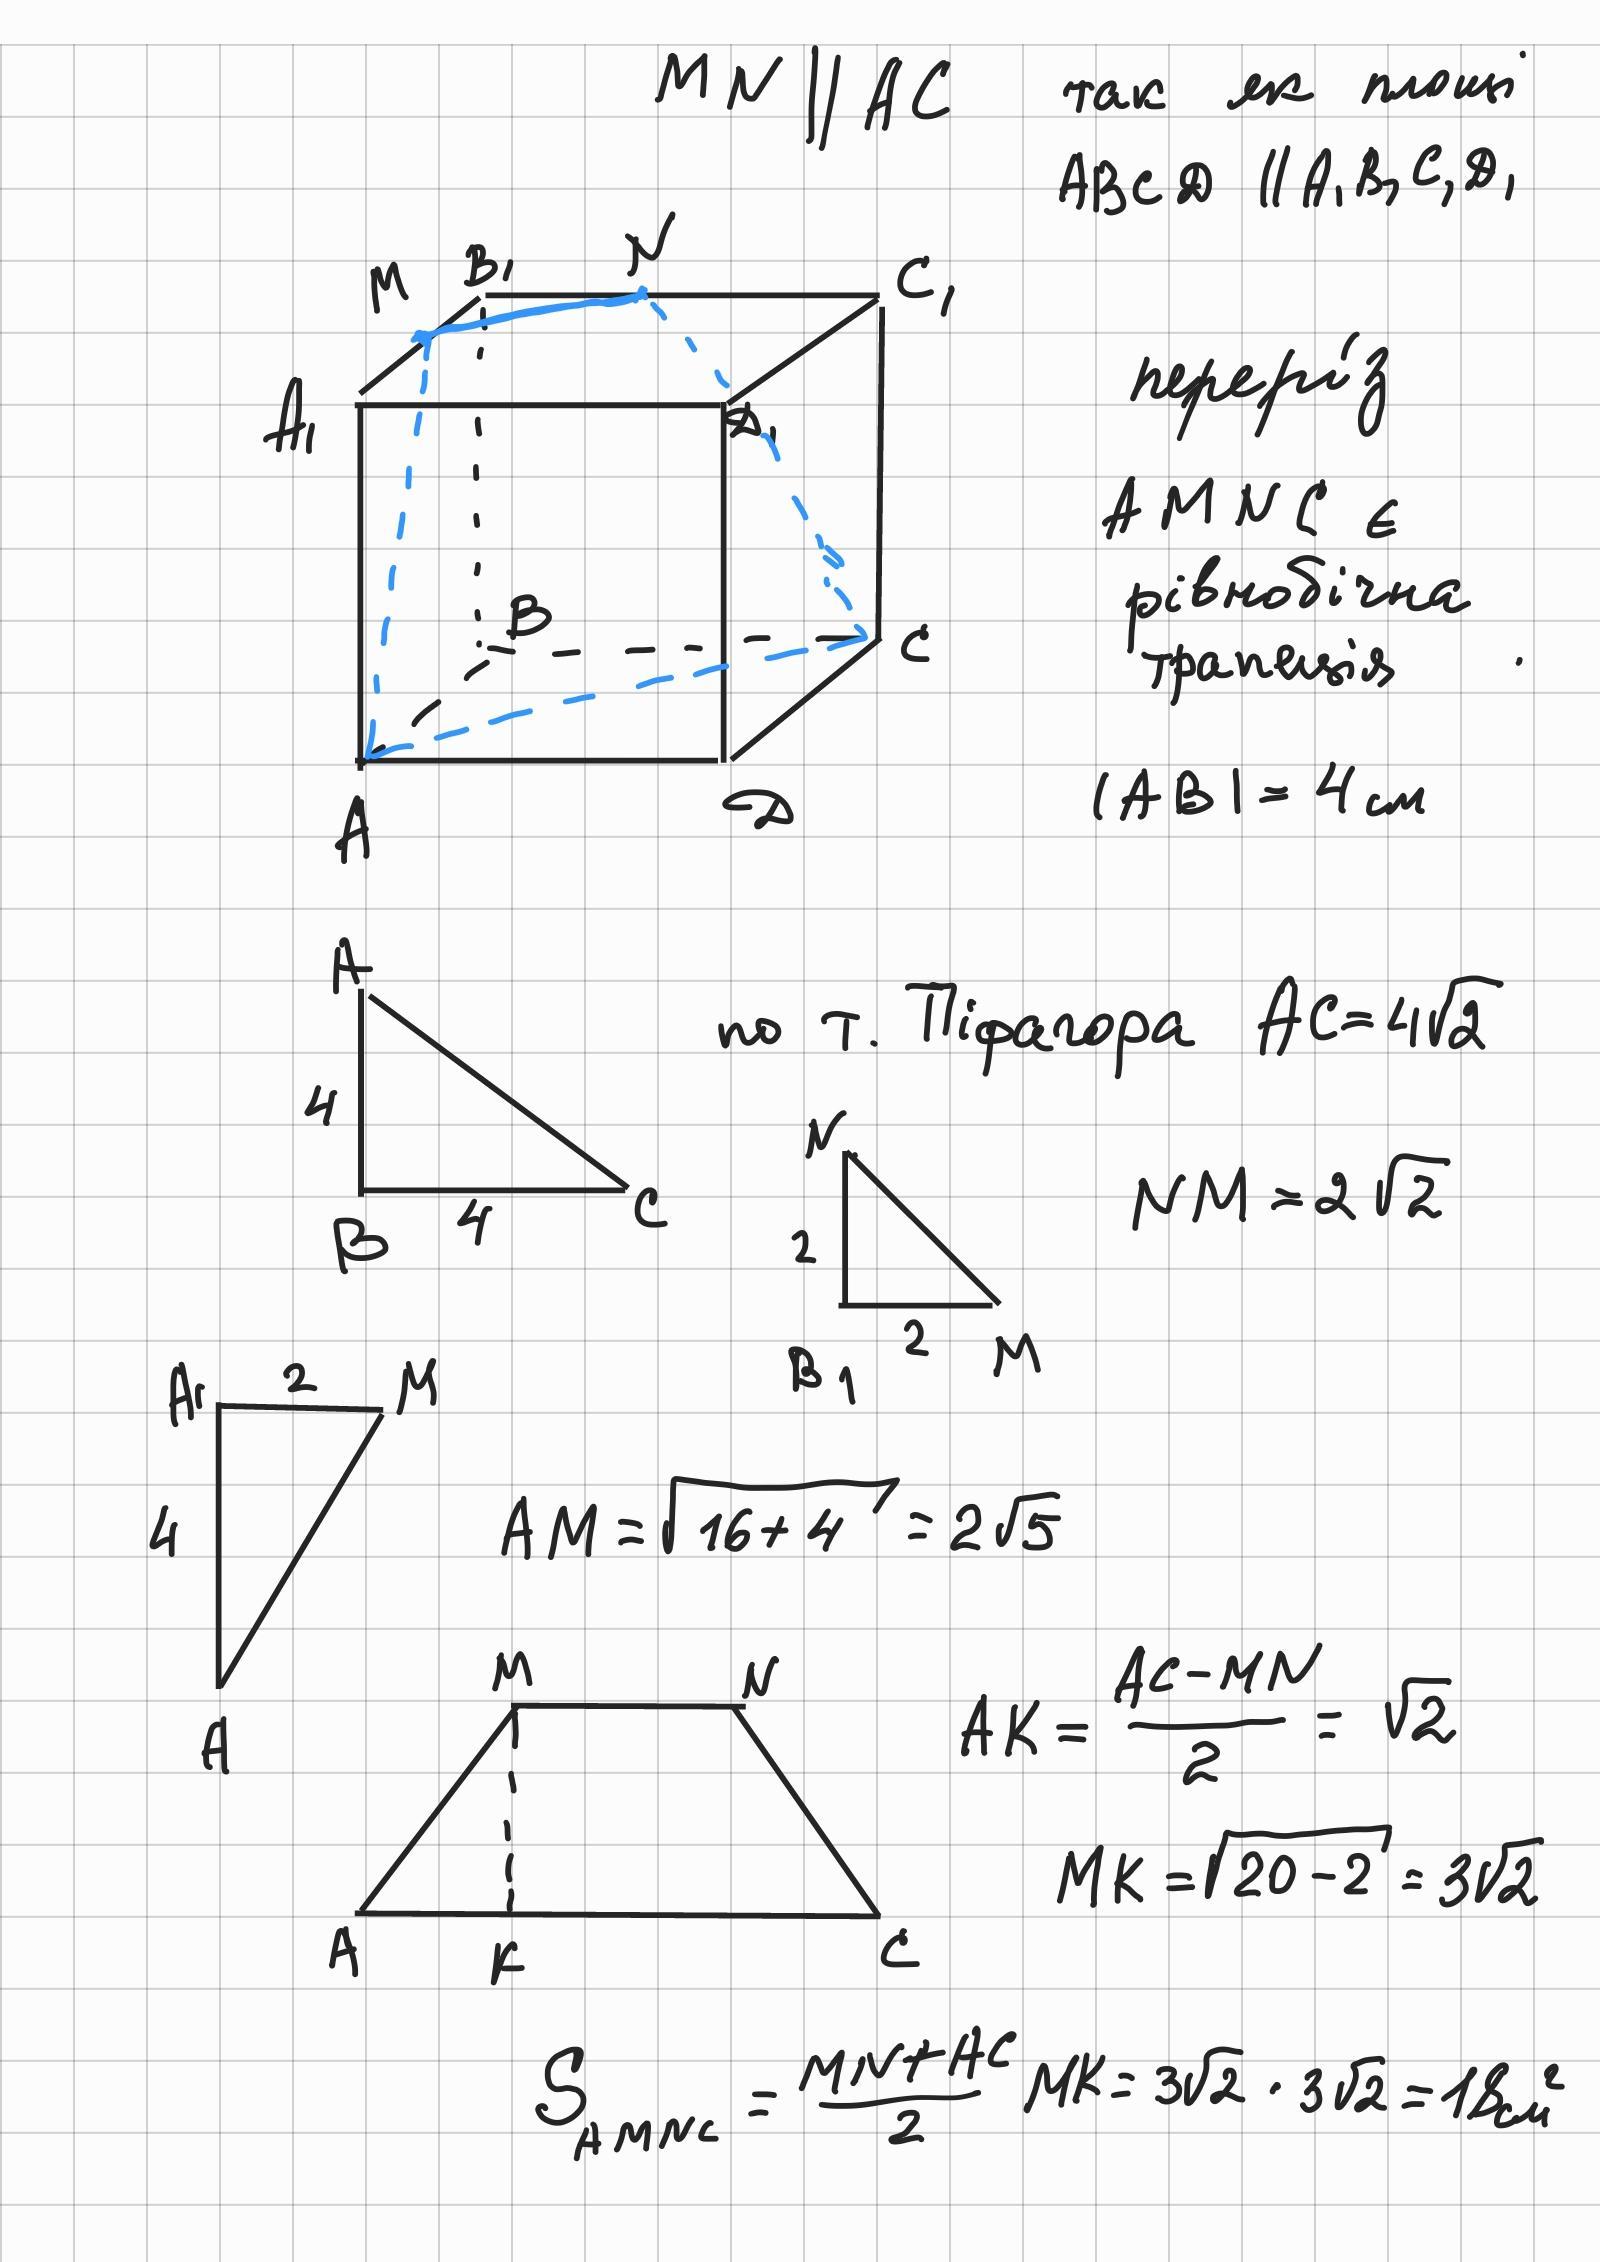 MN || AC так як площі
ABCD || A₁B₁C₁D₁
M B₁ N C₁
A₁ D₁
переріз
AMNC є
рівнобічна
трапеція
B C
A D
|AB| = 4 см
A
4
B 4 C
по т. Піфагора AC = 4√2
N
2
B₁ 2 M
NM = 2√2
A₁ 2 M
4
A
AM = √16+4 = 2√5
M N
A K C
AK = (AC-MN)/2 = √2
MK = √20-2 = 3√2
S AMNC = (MN+AC)/2 MK = 3√2 · 3√2 = 18см²